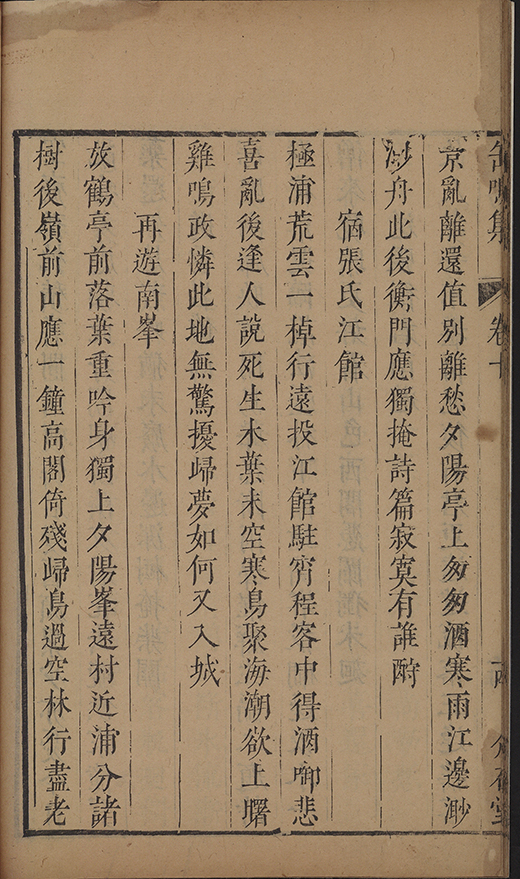 缶鳴集 卷十 介石堂
京亂離還值別離愁夕陽亭上匆匆酒寒雨江邊渺
渺舟此後衡門應獨掩詩篇寂寞有誰酧
宿張氏江館
極浦荒雲一棹行遠投江館駐宵程客中得酒啣悲
喜亂後逢人說死生木葉未空寒鳥聚海潮欲上曙
雞鳴政憐此地無驚擾歸夢如何又入城
再遊南峯
放鶴亭前落葉重吟身獨上夕陽峯遠村近浦分諸
樹後嶺前山應一鐘高閣倚殘歸鳥過空林行盡老